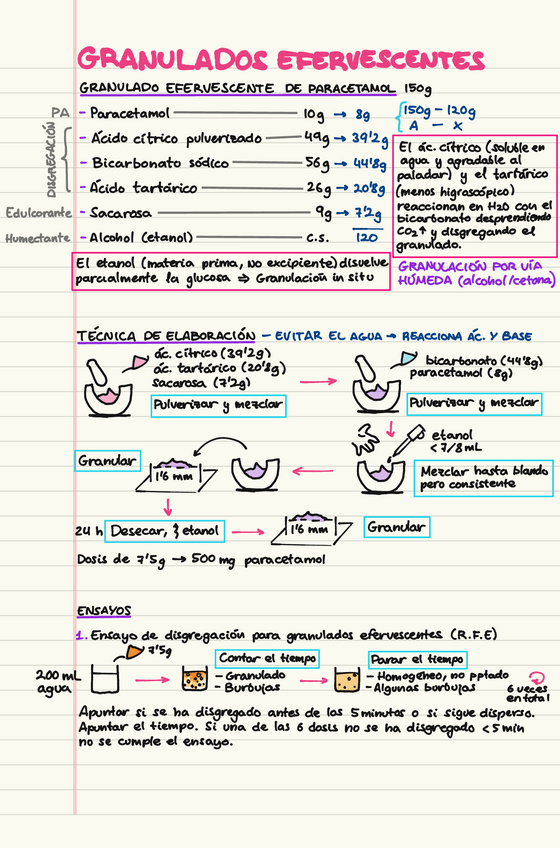 GRANULADOS EFERVESCENTES
GRANULADO EFERVESCENTE DE PARACETAMOL 150g
PA - Paracetamol 10g → 8g
150g - 120g
A - x
DISGREGACIÓN
- Ácido cítrico pulverizado 49g → 39'2g
- Bicarbonato sódico 56g → 44'8g
- Ácido tartárico 26g → 20'8g
Edulcorante - Sacarosa 9g → 7'2g
Humectante - Alcohol (etanol) c.s. 120
El ác. cítrico (soluble en
agua y agradable al
paladar) y el tartárico
(menos higroscópico)
reaccionan en H2O con el
bicarbonato desprendiendo
CO2↑ y disgregando el
granulado.
El etanol (materia prima, no excipiente) disuelve
parcialmente la glucosa ⇒ Granulación in situ
GRANULACIÓN POR VÍA
HÚMEDA (alcohol/cetona)
TÉCNICA DE ELABORACIÓN - EVITAR EL AGUA → REACCIONA ÁC. Y BASE
ác. cítrico (39'2g)
ác. tartárico (20'8g)
sacarosa (7'2g)
Pulverizar y mezclar
bicarbonato (44'8g)
paracetamol (8g)
Pulverizar y mezclar
etanol
< 7/8 mL
Mezclar hasta blando
pero consistente
Granular
1'6 mm
24 h Desecar, etanol
1'6 mm
Granular
Dosis de 7'5g → 500 mg paracetamol
ENSAYOS
1. Ensayo de disgregación para granulados efervescentes (R.F.E)
7'5g
200 mL
agua
Contar el tiempo
- Granulado
- Burbujas
Parar el tiempo
- Homogéneo, no pptado
- Algunas borbujas
6 veces
en total
Apuntar si se ha disgregado antes de los 5 minutos o si sigue disperso.
Apuntar el tiempo. Si una de las 6 dosis no se ha disgregado < 5 min
no se cumple el ensayo.